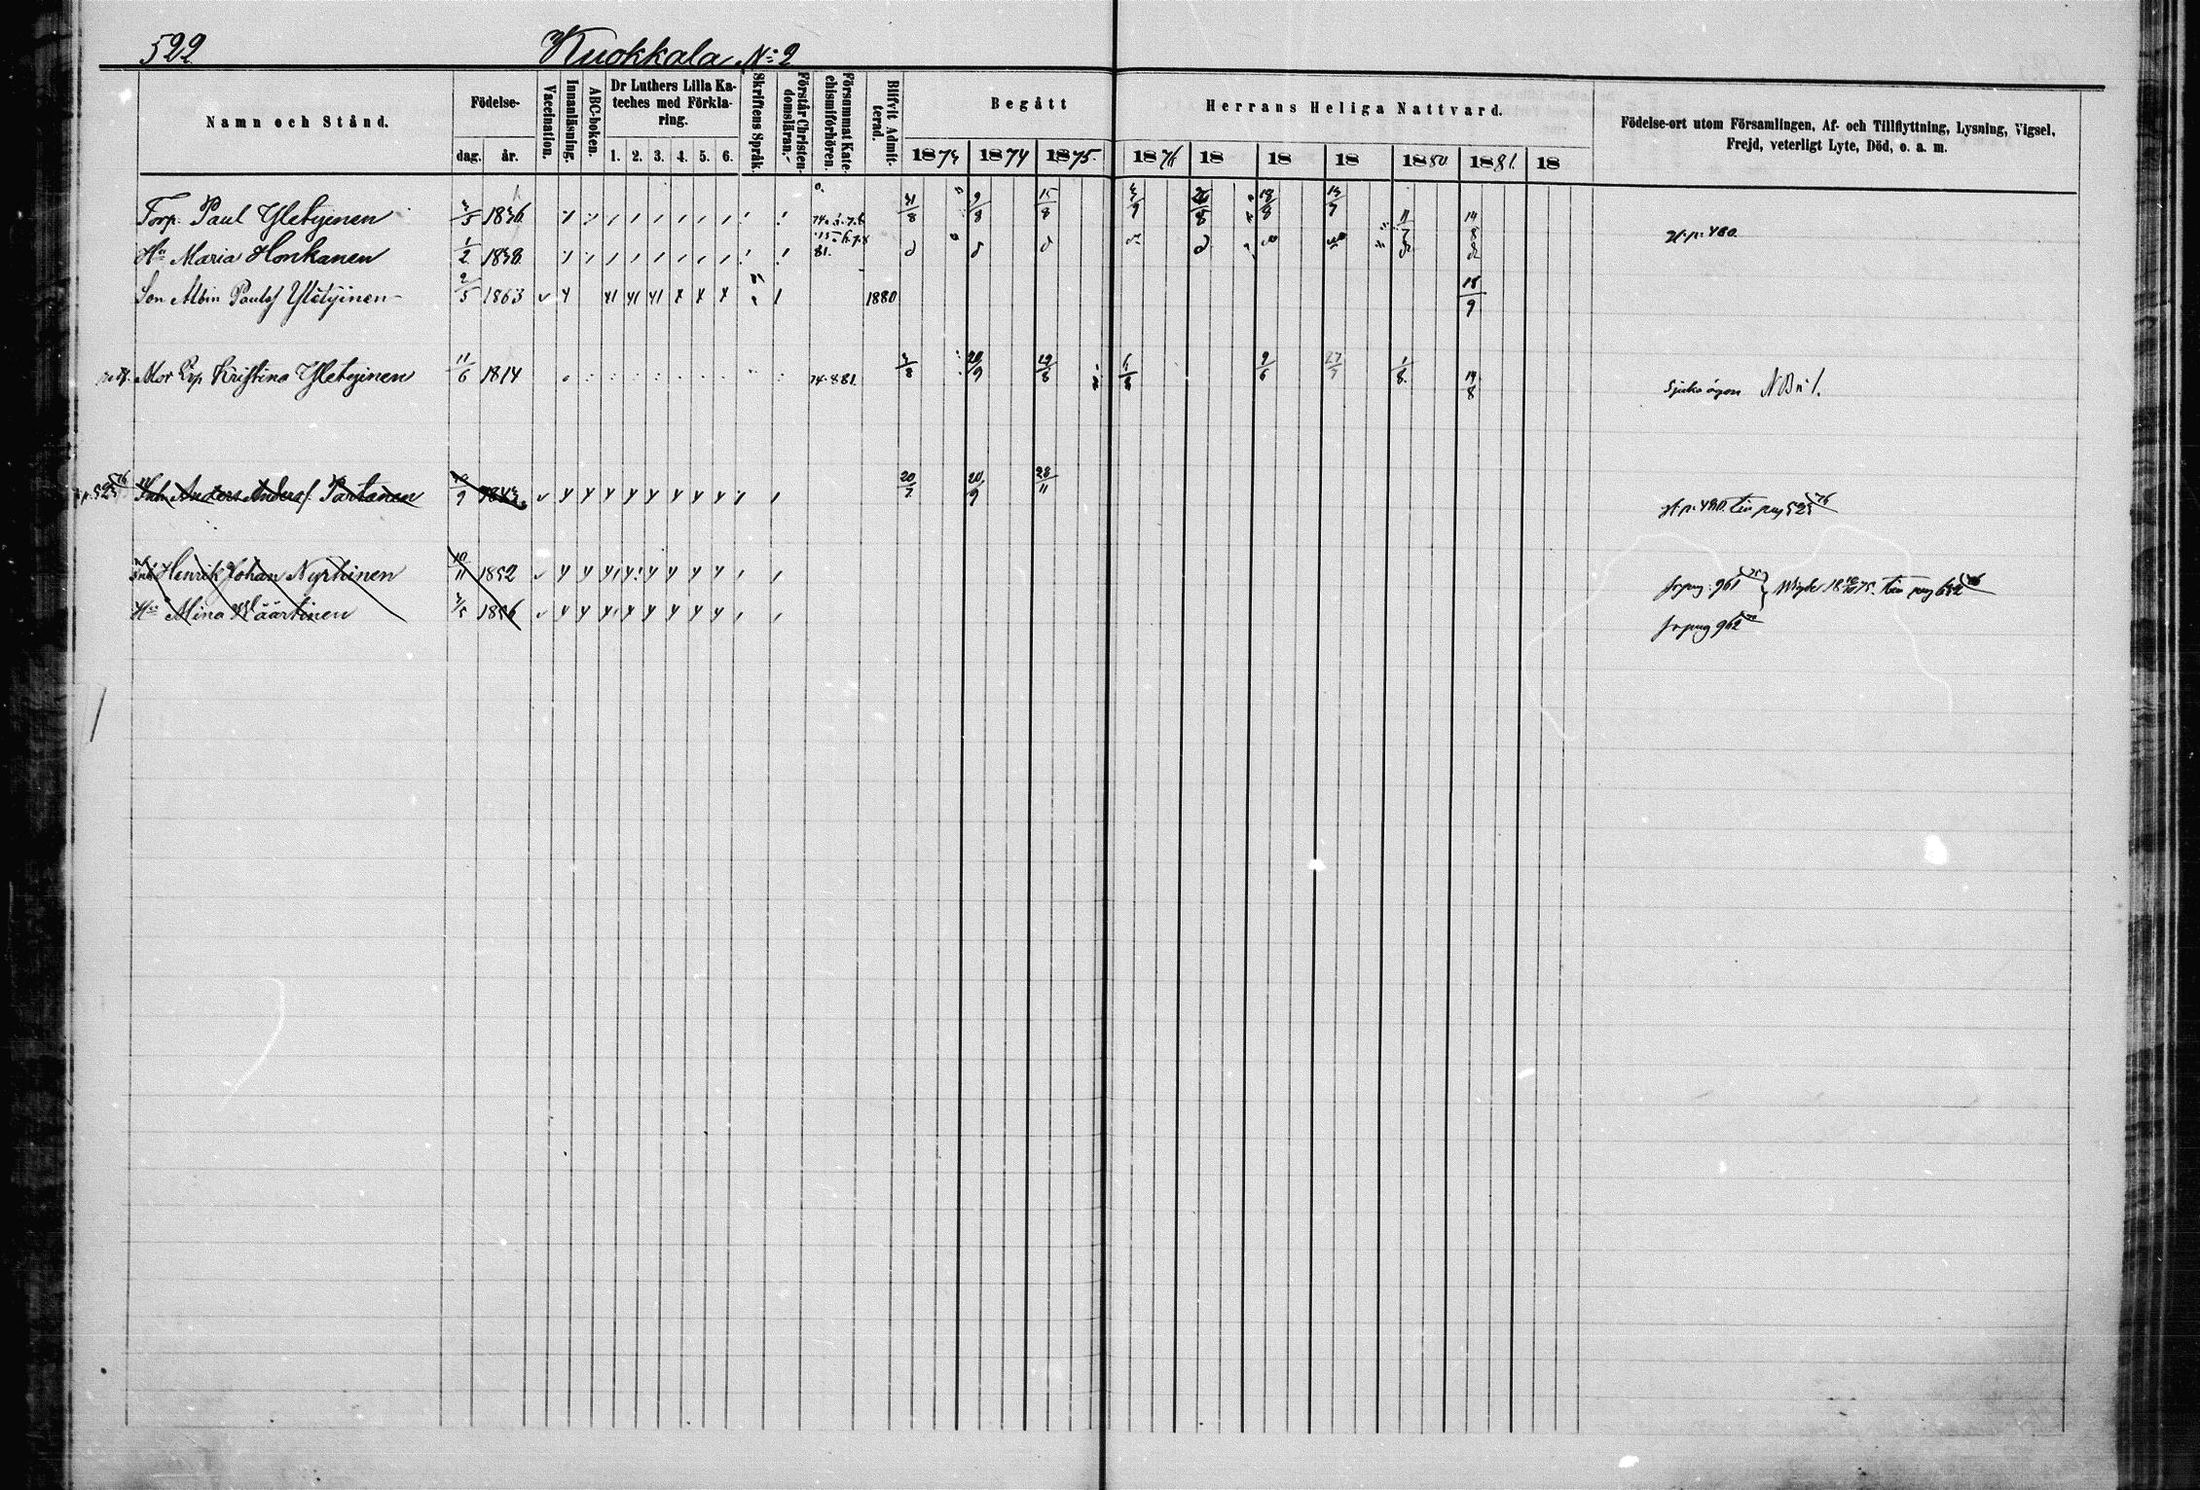 522 Kuokkala N:2
Namn och Stånd. Födelse- dag. år. Vaccination. Innanläsning. ABC-boken. Dr Luthers Lilla Ka-teches med Förkla-ring. 1. 2. 3. 4. 5. 6. Skriftens Språk. Förstår Christen-domsläran. Försummat Kate-chismiförhören. Blifvit Admit-terad. Begått Herrans Heliga Nattvard. 1873 1874 1875. 1876 18 18 18 1880 1881. 18 Födelse-ort utom Församlingen, Af- och Tillflyttning, Lysning, Vigsel, Frejd, veterligt Lyte, Död, o. a. m.
Torp. Paul Yletyinen 3/5 1836 31/8 9/8 15/8 3/9 26/8 18/8 13/7 11/7 14/8 H.p. 480
Hu Maria Honkanen 1/2 1838 81. d d d d
Son Albin Paulsf Yletyinen 2/5 1863 1880 18/9
Mor Kristina Yletyinen 11/6 1814 74. 881. 3/8 20/9 19/8 6/8 9/6 17/7 1/8 14/8 Sjuka ögon N B n: 1.
525 76 Inh Anders Andersf. Partanen 9 1843 20/7 20/9 28/11 H.p. 480. till pag 525 76
Inh Henrik Johan Nyrhinen 10/11 1852 fr pag. 961 75 till pag 632 76
Hu Mina Väärtinen 3/5 1856 fr pag 962